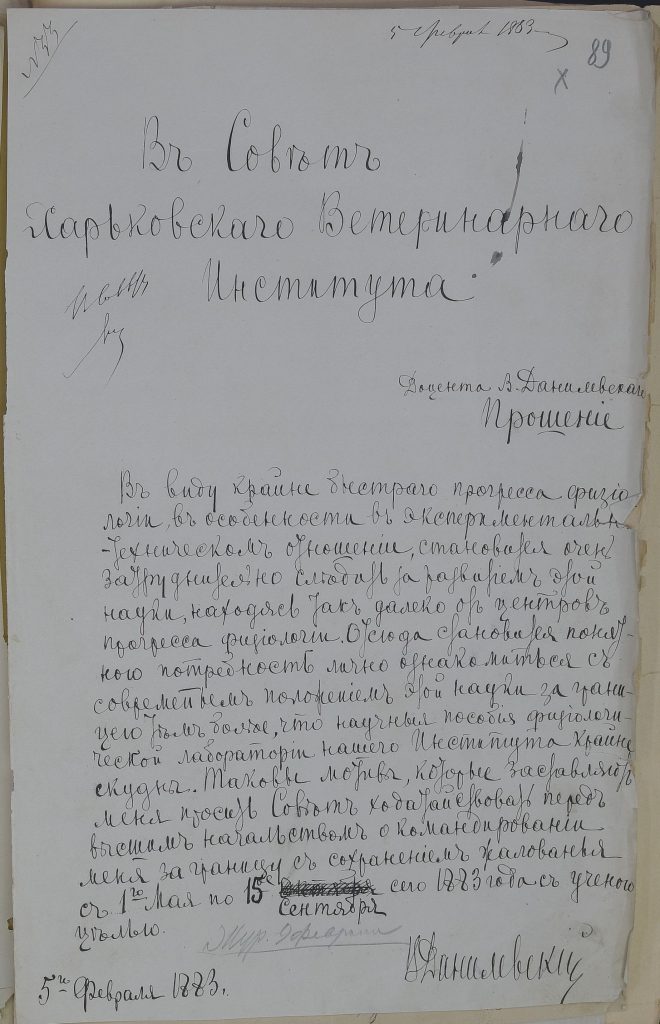 № 33
5 Февраля 1883
89
Въ Совѣтъ
Харьковскаго Ветеринарнаго
Института.
Доцента В. Данилевскаго
Прошеніе
Въ виду крайне быстраго прогресса физіо
логіи, въ особенности въ экспериментальн
-техническомъ отношеніи, становится очень
затруднительно слѣдить за развитіемъ этой
науки, находясь такъ далеко отъ центровъ
прогресса физіологіи. Отсюда становится понят-
ною потребность лично ознакомиться съ
современнымъ положеніемъ этой науки за грани-
цею тѣмъ болѣе, что научныя пособія физіологи-
ческой лабораторіи нашего Института крайне
скудны. Таковы мотивы, которые заставляютъ
меня просить Совѣтъ ходатайствовать передъ
высшимъ начальствомъ о командированіи
меня за границу съ сохраненіемъ жалованья
съ 1го Мая по 15е сего 1883 года съ ученою
Сентября
цѣлью.
Жур. 9 февраля
5го Февраля 1883.
В Данилевскій